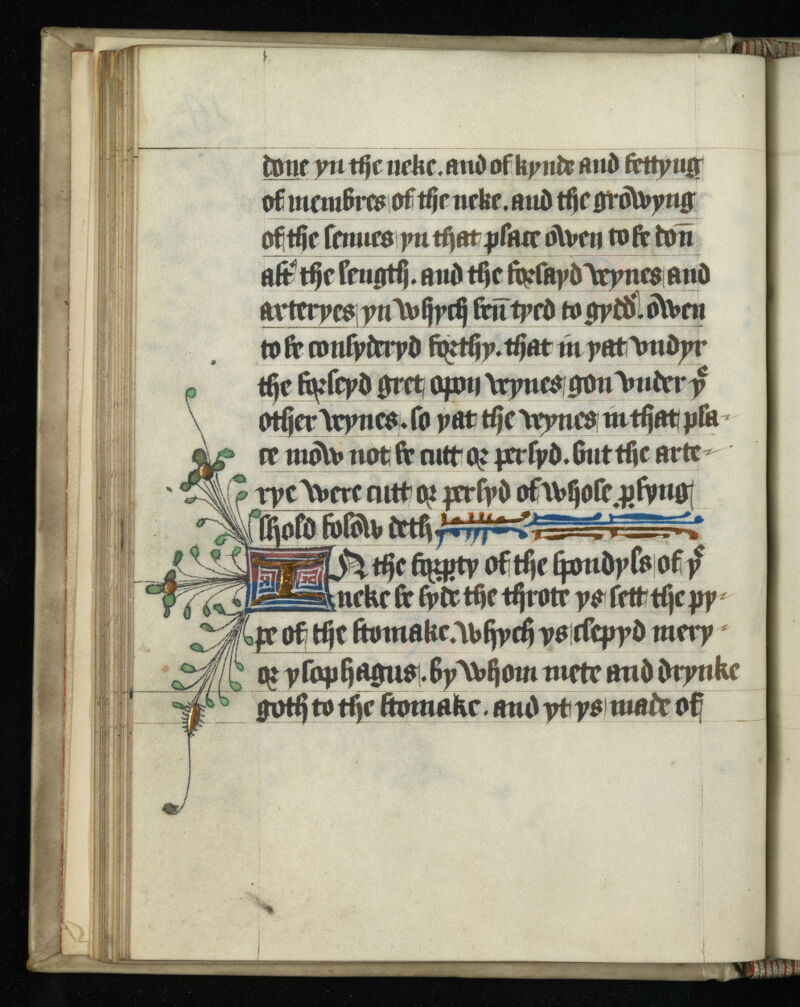 done yn the neke. and of kynde and settyng
of membres of the neke. and the growyng
of the senues yn that place owen to be don̄
aft͛ the length. and the forsayd veynes and
arteryes yn whych ben̄ tyed to gydd͛. owen
to be consyderyd forthy. that in yat vndyr
the forseyd gret apon veynes gon vnder yͤ
other veynes. so yat the veynes in that pla-
ce mow not be cutt or persyd. but the arte-
rye were cutt or persyd of whose ꝑsyng
shold folow deth
IN the forꝑty of the spondyls of yͤ
neke be syde the throte ys sett the py-
pe of the stomake. whych ys clepyd mery -
or ysophagus. by whom mete and drynke
goth to the stomake. and yt ys made of